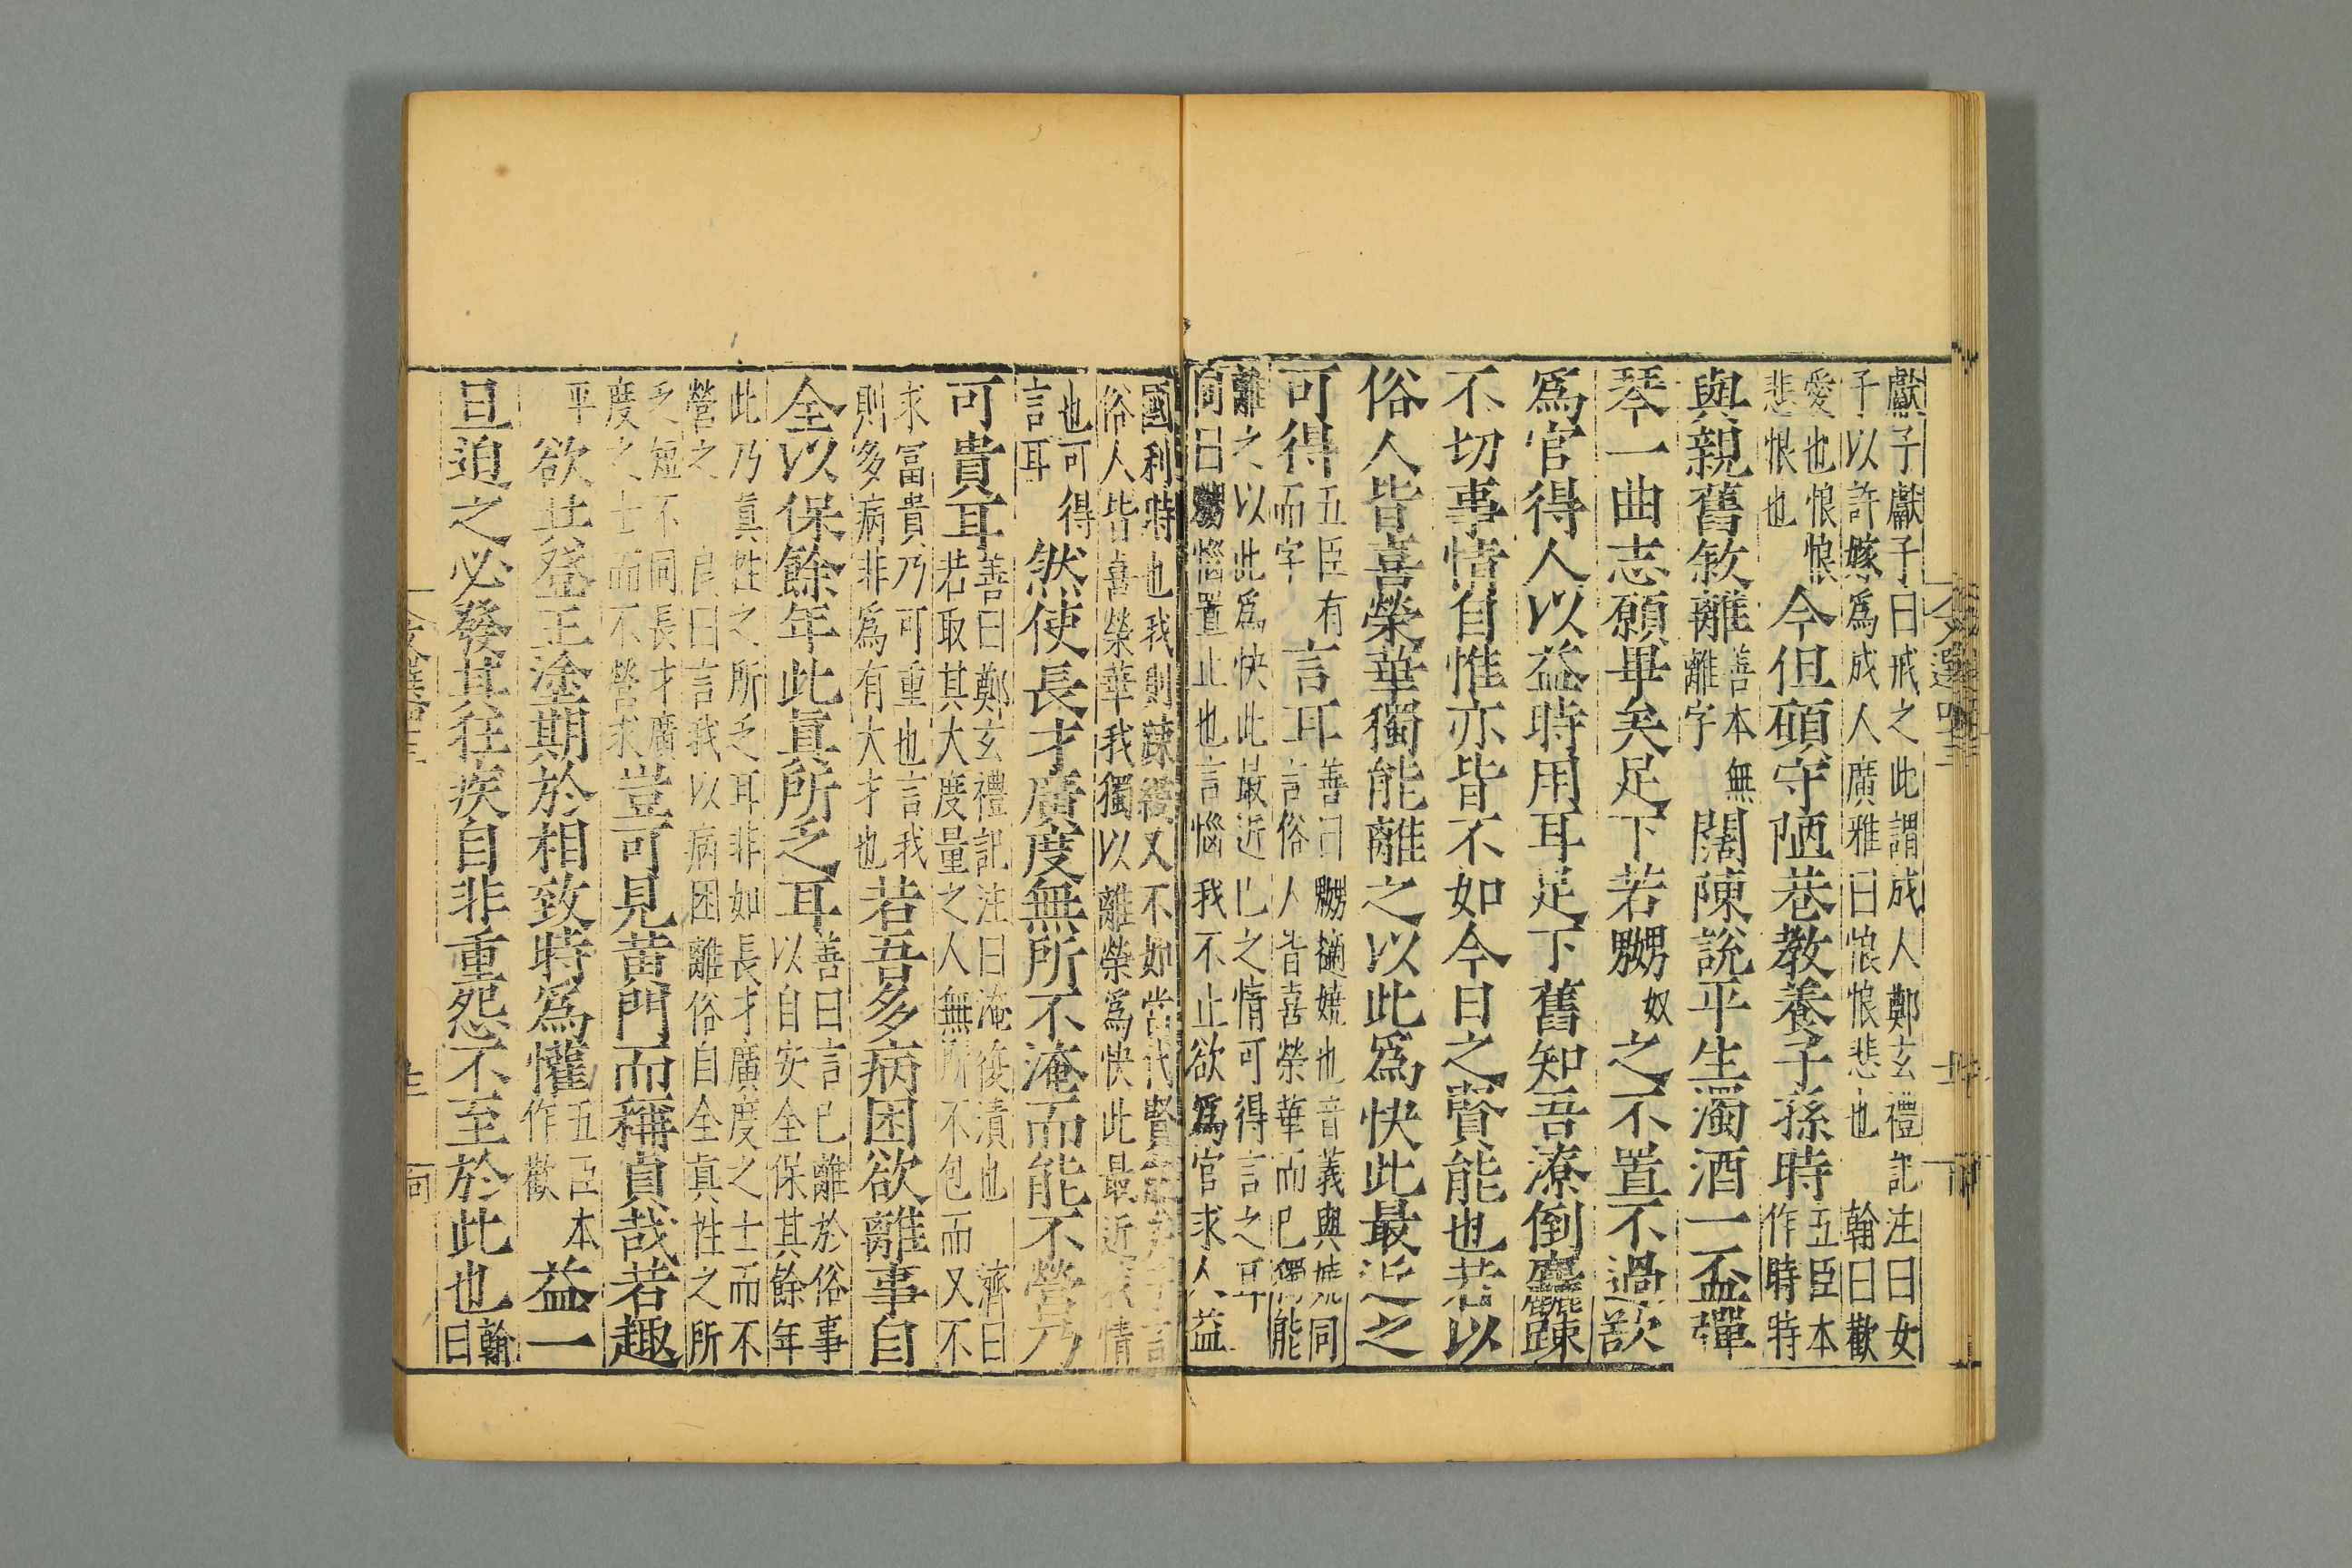 獻子獻子曰戒之此謂成人鄭玄禮記注曰女
子以許嫁爲成人廣雅曰悢悢悲也 翰曰歡
愛也悢悢
悲恨也
今但願守陋巷教養子孫時
五臣本
作時時
與親舊敘離
善本無
離字
闊陳說平生濁酒一盃彈
琴一曲志願畢矣足下若嬲
奴
之不置不過欲
爲官得人以益時用耳足下舊知吾潦倒麤踈
不切事情自惟亦皆不如今日之賢能也若以
俗人皆喜榮華獨能離之以此爲快此最近之
可得
五臣有
而字
言耳
善曰嬲擿嬈也音義與嬈同
言俗人皆喜榮華而已獨能
離之以此爲快此最近已之情可得言之耳
向曰嬲惱置止也言惱我不止欲爲官求人益
國利時也我則踈緩又不如當代賢
俗人皆喜榮華我獨以離榮爲快此最近 情
也可得
言耳
然使長才廣度無所不淹而能不營乃
可貴耳
善曰鄭玄禮記注曰淹復漬也 濟曰
若取其大度量之人無所不包而又不
求富貴乃可重也言我
則多病非爲有大才也
若吾多病困欲離事自
全以保餘年此真所乏耳
善曰言已離於俗事
以自安全保其餘年
此乃真性之所乏耳非如長才廣度之士而不
營之 良曰言我以病困離俗自全真性之所
乏短不同長才廣
度之士而不營求
豈可見黃門而稱貞哉若趣
平
欲共登王塗期於相致時爲懽
五臣本
作歡
益一
旦迫之必發其狂疾自非重怨不至於此也
翰
曰